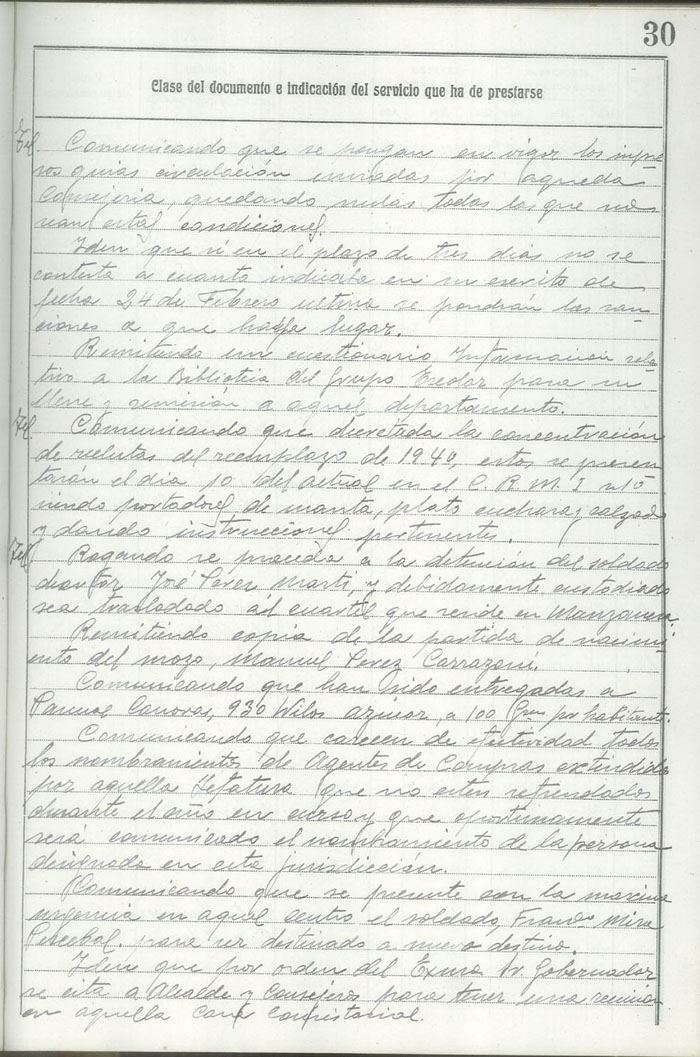 30
Clase del documento e indicación del servicio que ha de prestarse
Tel. Comunicando que se pongan en vigor los impre-
sos guias circulación enviadas por aquella
Consejeria, quedando nulas todas las que no
sean estas condiciones.
Iden que si en el plazo de tres dias no se
contesta a cuanto indicaba en su escrito de
fecha 24 de Febrero ultimo se pondrán las san-
ciones a que halla lugar.
Remitiendo un cuestionario Información rela-
tivo a la Biblioteca del Grupo Escolar para su
llene y remisión a aquel departamento.
Tel. Comunicando que decretada la concentración
de reclutas del reemplazo de 1940, estos se presen
tarán el dia 10 del actual en el C. R. M. I nº
siendo portadores de manta, plato cuchara y calzado
y dando instrucciones pertinentes.
Tel. Rogando se proceda a la detención del soldado
desertor José Perez Marti, y debidamente custodiado
sea trasladado al cuartel que reside en Manzanera.
Remitiendo copia de la partida de nacimi-
ento del mozo, Manuel Perez Carrazoni.
Comunicando que han sido entregadas a
Pascual Canovas, 930 Kilos azucar, a 100 Grms por habitante.
Comunicando que carecen de efectividad todos
los nombramientos de Agentes de Compras extendidos
por aquella Jefatura que no esten refrendados
durante el año en curso y que oportunamente
será comunicado el nombramiento de la persona
designada en esta jurisdicción.
Comunicando que se presente con la maxima
urgencia en aquel centro el soldado, Franco Mira
para ser destinado a nuevo destino.
Iden que por orden del Exmo Sr. Gobernador
se cita a Alcalde y Consejeros para tener una reunion
en aquella Casa Consistorial.